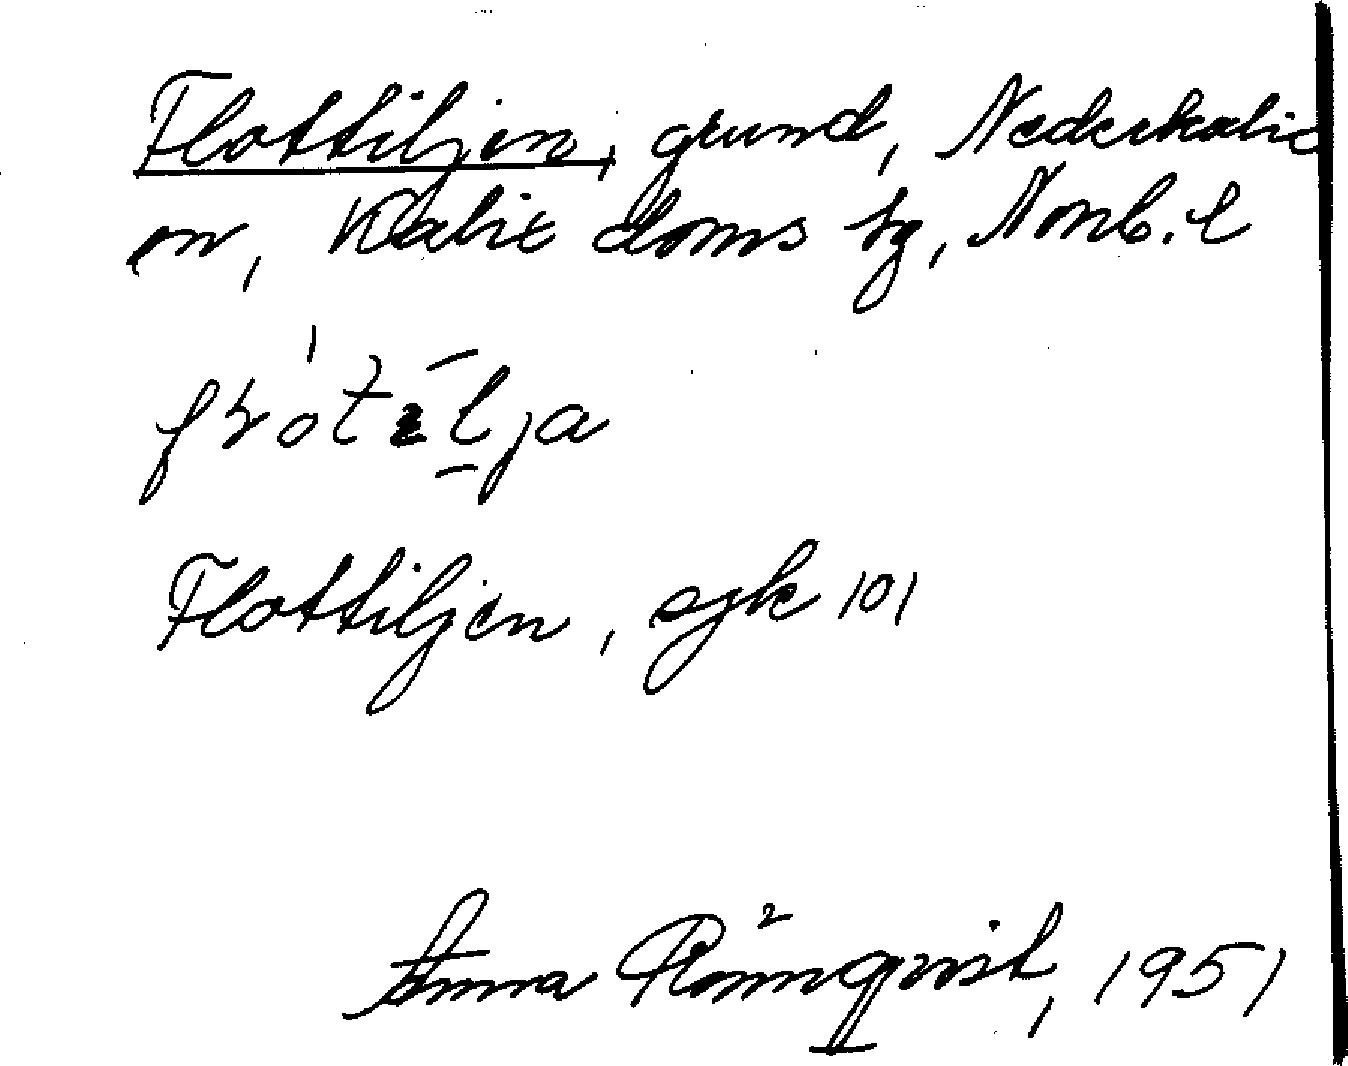 Flottiljen, grund, Nederkalix
sn, Kalix doms tg, Norrb. l
Flottiljen, sjk 101
Anna Rönnqvist, 1951